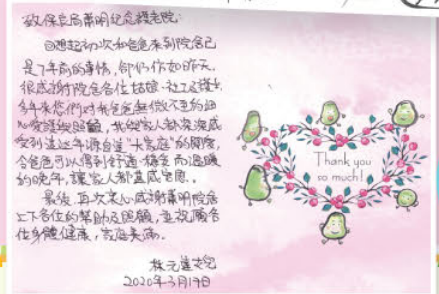 致保良局蕭明紀念護老院:
回想起初次和爸爸來到院舍已
是7年前的事情,卻仍仿如昨天。
很感謝院舍各位姑娘、社工及護士
多年來您們對我爸爸無微不至的細
心愛護與照顧,我與家人都深深感
受到這近年源自這"大家庭"的關愛,
令爸爸可以得到舒適、穩定而溫暖
的晚年,讓家人都甚感安慰。
最後,再次衷心感謝蕭明院舍
上下各位的幫助及照顧,並祝願各
位身體健康,家庭美滿。
2020年3月19日
Thank you
so much!